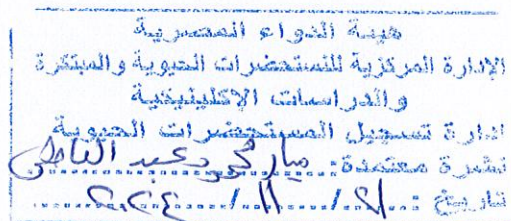 هيئة الدواء المصرية
الإدارة المركزية للمستحضرات الحيوية والمبتكرة
والدراسات الإكلينيكية
ادارة تسجيل المستحضرات الحيوية
نشرة معتمدة: ميار محمود عبد الباطن
تاريخ: ٢١/١١/٢٠٢٤